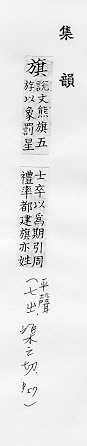 集韻
旗
說文熊旗五
斿以象罰星
士卒以為期引周
禮率都建旗亦姓
(平聲.
七之. 渠之切.